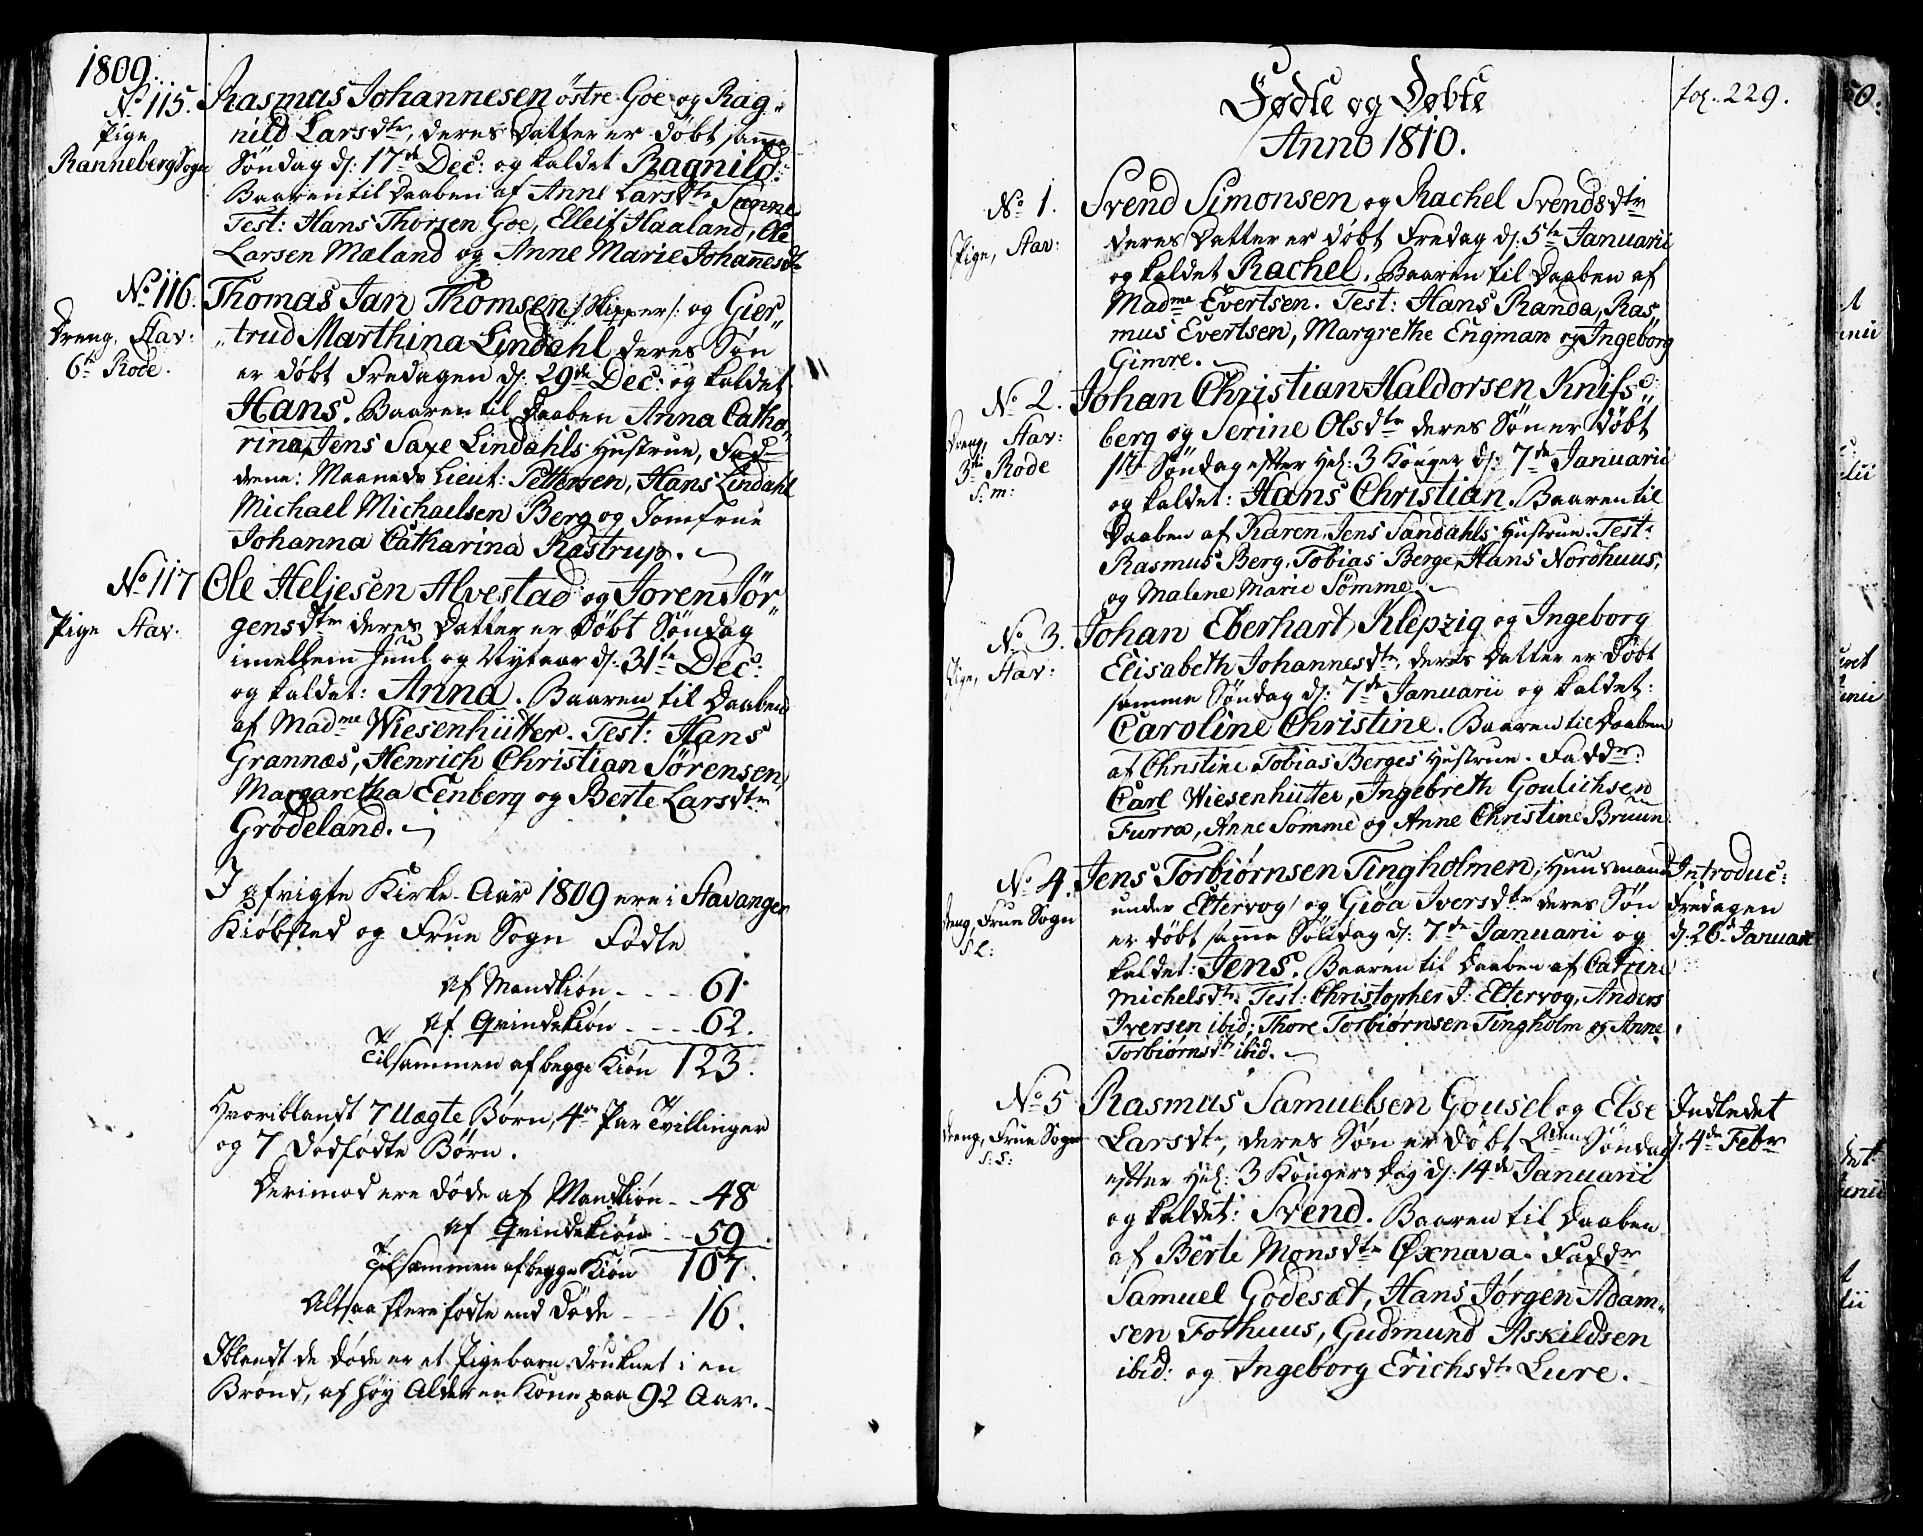 1809.
No 115.
Pige
Ranneberg Sogn
Rasmus Johannesen östre Goe og Rag-
nild Larsdtr, deres Datter er döbt samme
Söndag d: 17de Dec: og kaldet Ragnild.
Baaren til Daaben af Anne Larsdtr Sænne
Test: Hans Thorsen Goe, Elleif Haaland, Ole
Larsen Mæland og Anne Marie Johannesdtr
No 116.
Dreng, Stav:
6te Rode.
Thomas Jan Thomsen /: Skipper :/ og Gier-
trud Marthina Lindahl deres Søn
er döbt Fredagen d: 29de Dec: og kaldet
Hans. Baaren til Daaben Anna Catha-
rina, Jens Saxe Lindahls Hustrue, Fad-
drene: Maaneds Lieut: Pettersen, Hans Lindahl
Michael Michaelsen Berg og Jomfrue
Johanna Catharina Rastrup.
No 117
Pige Stav:
Ole Heljesen Alvestad og Joren Jör-
gensdtr deres Datter er Döbt Söndag
imellem Juul og Nytaar d: 31te Dec:
og kaldet: Anna. Baaren til Daaben
af Madme Wiesenhütter. Test: Hans
Grannæs, Henrich Christian Sörensen,
Margaretha Eenberg og Berte Larsdtr
Grödeland.
I afvigte Kirke-Aar 1809 ere i Stavanger
Kiöbsted og Frue Sogn Födte
af Mandkiön - - - 61.
af Qvindekiön - - - 62.
Tilsammen af begge Kiön 123.
Hvoriblandt 7 Uægte Børn, 4re Par Tvillinger
og 7 Dødfødte Børn.
Derimod ere døde af Mandkiön - - 48
af Qvindekiön - - 59
Tilsammen af begge Kiön 107.
Altsaa flere fødte end Døde - - - 16.
Iblandt de døde er et Pigebarn druknet i en
Brønd, af høy Alder en Kone paa 92 Aar.
Födte og Döbte
Anno 1810.
fol. 229.
No 1.
Pige, Stav:
Svend Simonsen og Rachel Svendsdtr
deres Datter er döbt Fredag d: 5te Januarii
og kaldet Rachel. Baaren til Daaben af
Madme Evertsen. Test: Hans Randa, Ras-
mus Evertsen, Margrethe Engman og Ingeborg
Gimre.
No 2.
Dreng, Stav:
3die Rode
S: m:
Johan Christian Haldorsen Knifs-
berg og Serine Olsdtr deres Søn er Döbt
1ste Söndag efter Hel: 3 Konger d: 7de Januarii
og kaldet: Hans Christian. Baaren til
Daaben af Karen, Jens Sandahls Hustrue. Test:
Rasmus Berg, Tobias Berge, Hans Nordhuus,
og Malene Marie Sömme.
No 3.
Pige, Stav:
Johan Eberhart Klepzig og Ingeborg
Elisabeth Johannesdtr, deres Datter er Döbt
samme Söndag d: 7de Januarii og kaldet:
Caroline Christine. Baaren til Daaben
af Christine Tobias Berges Hustrue. Faddr:
Carl Wiesenhütter, Ingebreth Goulichsen
Furra, Anne Sömme og Anne Christine Bruun
No 4.
Dreng, Frue Sogn
S L:
Jens Torbiørnsen Tingholmen, Huusmand
under Eltervog / og Gida Iversdtr deres Søn
er döbt samme Söndag d: 7de Januarii og
kaldet: Jens. Baaren til Daaben af Catrine
Michelsdtr. Test: Christopher J: Eltervog, Anders
Iversen ibid; Thore Torbiörnsen Tingholm og Anne
Torbiörnsdtr ibid.
Introduc:
Fredagen
d: 26de Januarii
No 5
Dreng, Frue Sogn
S: S:
Rasmus Samuelsen Gousel og Else
Larsdtr, deres Søn er döbt 2den Söndag
efter Hel: 3 Kongers Dag d: 14de Januarii
og kaldet: Svend. Baaren til Daaben
af Berte Monsdtr Øxnava. Faddr
Samuel Godesæt, Hans Jörgen Adam-
sen Fothuus, Gudmund Askildsen
ibid: og Ingeborg Erichsdtr Lure.
Indledet
d: 4de Febr